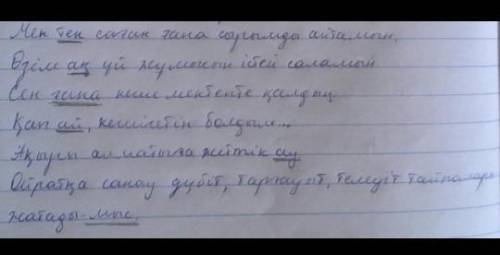 Мен тек саған ғана сырымды айтамын.
Өзім ақ үй жұмысын істей саламын
Сен ғана кеше мектепте қалдың
Қап ай, кешігетін болдым...
Ақыры алматыға жеттік ау
Ойратқа санау дүбіт, тарғауыт, телеуіт тайпалары
жатады-мыс.